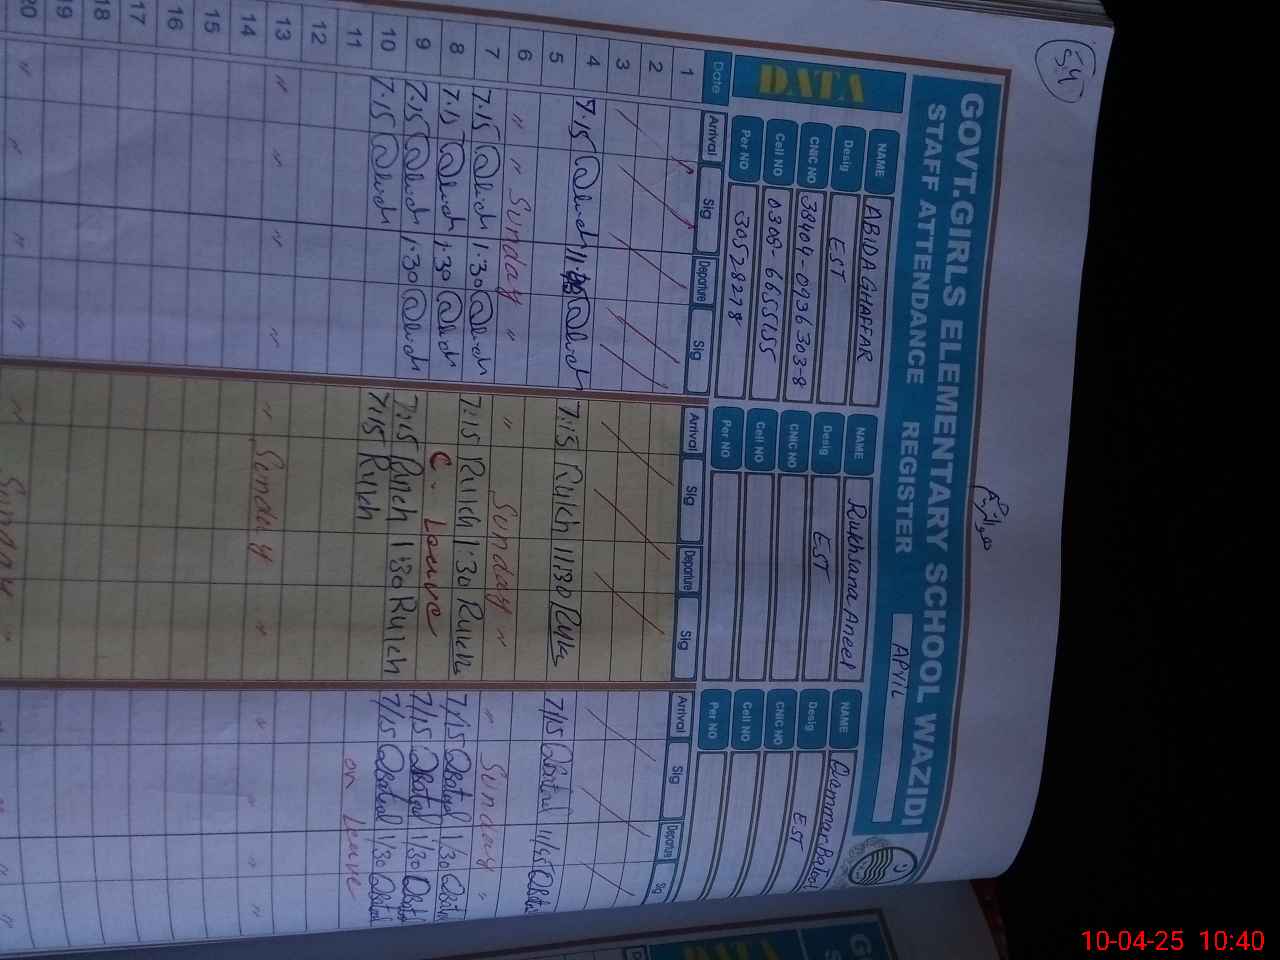 54
GOVT.GIRLS ELEMENTARY SCHOOL WAZIDI
STAFF ATTENDANCE REGISTER APYIL
DATA
NAME ABIDA GHAFFAR
Desig EST
CNIC NO 38404-0936303-8
Cell NO 0308-6655155
Per NO 30528278
NAME Rukhsana Aneel
Desig EST
CNIC NO
Cell NO
Per NO
NAME Qammar Batool
Desig EST
CNIC NO
Cell NO
Per NO
Date Arrival Sig Departure Sig Arrival Sig Departure Sig Arrival Sig Departure Sig
1
2
3
4 7.15 11.30 7:15 Rukh 11:30 Rukh 7/15 QBatool 11/45
5
6 " " Sunday " " Sunday " " Sunday "
7 7.15 1.30 7:15 Rukh 1:30 Rukh 7/15 QBatool 1/30
8 7.15 1.30 C. Leave 7/15 QBatool 1/30
9 7.15 1.30 7:15 Rukh 1:30 Rukh 7/15 QBatool 1/30
10 7.15 7:15 Rukh
11 on Leave
12
13 " " " " " Sunday " " " " "
14
15
16
17
18
19
20 " " " " " Sunday " " " "
DATA
G
S
10-04-25 10:40